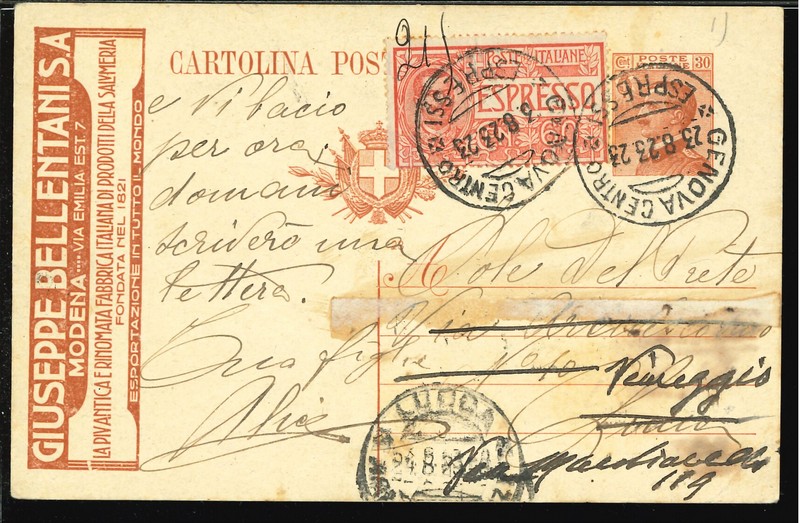 GIUSEPPE BELLENTANI S.A
MODENA .... VIA EMILIA EST. 7.
LA PIV ANTICA E RINOMATA FABBRICA ITALIANA DI PRODOTTI DELLA SALVMERIA
FONDATA NEL 1821
ESPORTAZIONE IN TUTTO IL MONDO
CARTOLINA POST
ITALIANE
ESPRESSO
POSTE
30
GENOVA CENTRO
ESPRESSI
23.8.23.23
GENOVA CENTRO
ESPRESSI
23.8.23.23
1)
e vi bacio
per ora;
domani
scriverò una
lettera.
figlia
Alice
Cole Del Prete
Via
Viareggio
Lucca
Via Machiavelli
119
LUCCA
24.8.23